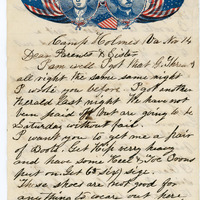 Camp Holmes Va Nov 14
Dear Parents & Sister
I am well I got that
all right the same night
I write you before. I got another
Herald last night We have not
been paid off but are going to be
Saturday without fail.
I want you to get me a pair
of Boots. Get very heavy
and have some Heel & Toe Irons
put on Get size.
These shoes are not good for
anything to wear out here